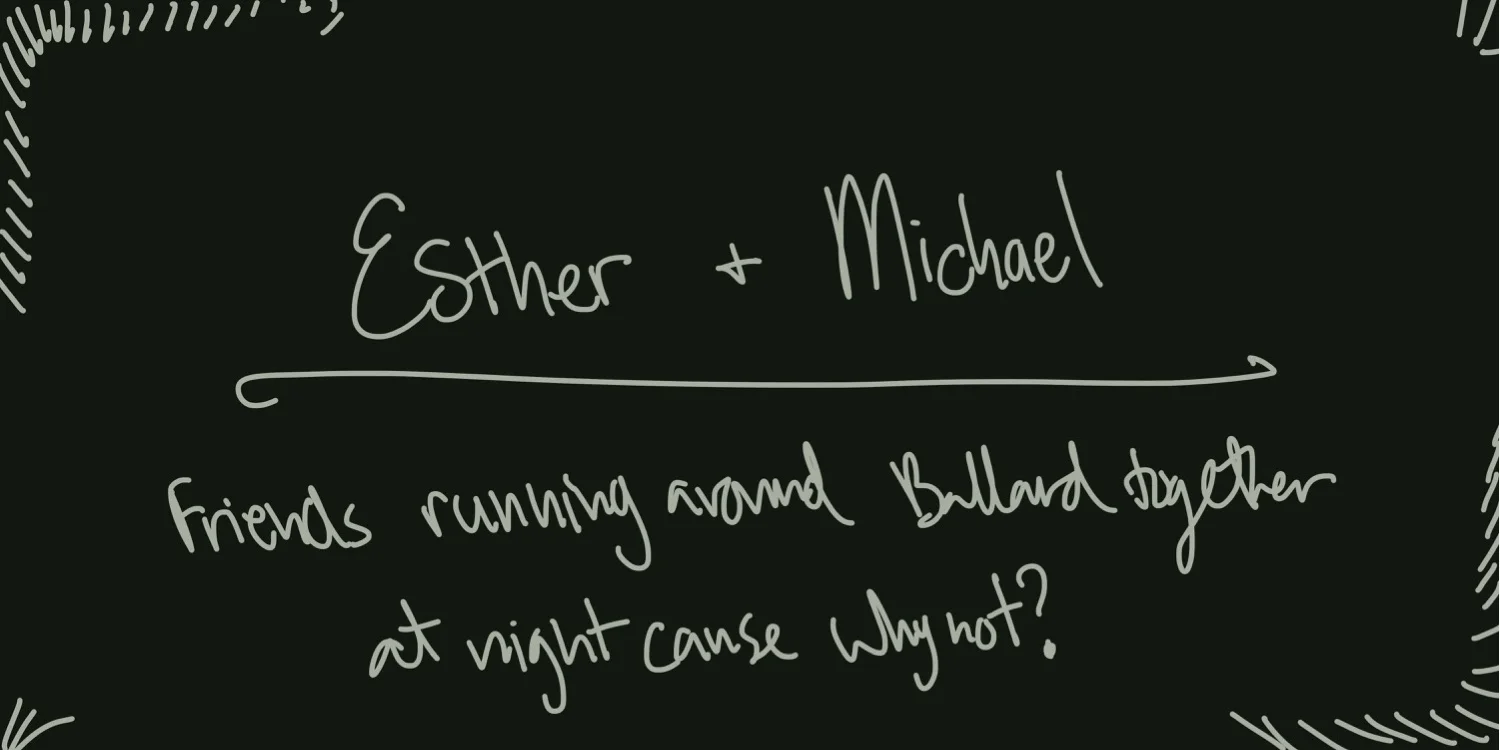 Esther + Michael
Friends running around Ballard together
at night cause why not?